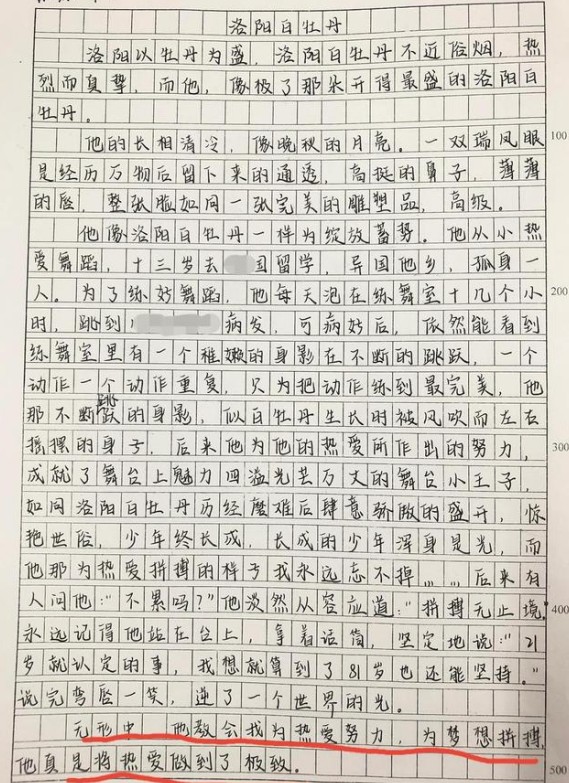 洛阳白牡丹
洛阳以牡丹为盛,洛阳白牡丹不近俗烟,热
烈而真挚,而他,像极了那朵开得最盛的洛阳白
牡丹。
他的长相清冷,像晚秋的月亮。一双瑞凤眼 100
是经历万物后留下来的通透,高挺的鼻子,薄薄
的唇,整张脸如同一张完美的雕塑品,高级。
他像洛阳白牡丹一样为绽放蓄势。他从小热
爱舞蹈,十三岁去国留学,异国他乡,孤身一
人。为了练好舞蹈,他每天泡在练舞室十几个小 200
时,跳到病发,可病好后,依然能看到
练舞室里有一个稚嫩的身影在不断的跳跃,一个
动作一个动作重复,只为把动作练到最完美,他
那不断跳跃的身影,似白牡丹生长时被风吹而左右
摇摆的身子,后来他为他的热爱所作出的努力, 300
成就了舞台上魅力四溢光芒万丈的舞台小王子,
如同洛阳白牡丹历经磨难后肆意骄傲的盛开,惊
艳世俗,少年终长成,长成的少年浑身是光,而
他那为热爱拼搏的样子我永远忘不掉……后来有
人问他:"不累吗?"他淡然从容应道:"拼搏无止境, 400
永远记得他站在台上,拿着话筒,坚定地说:"21
岁就认定的事,我想就算到了81岁也还能坚持。"
说完弯唇一笑,逆了一个世界的光。
无形中 他教会我为热爱努力,为梦想拼搏,
他真是将热爱做到了极致。 500